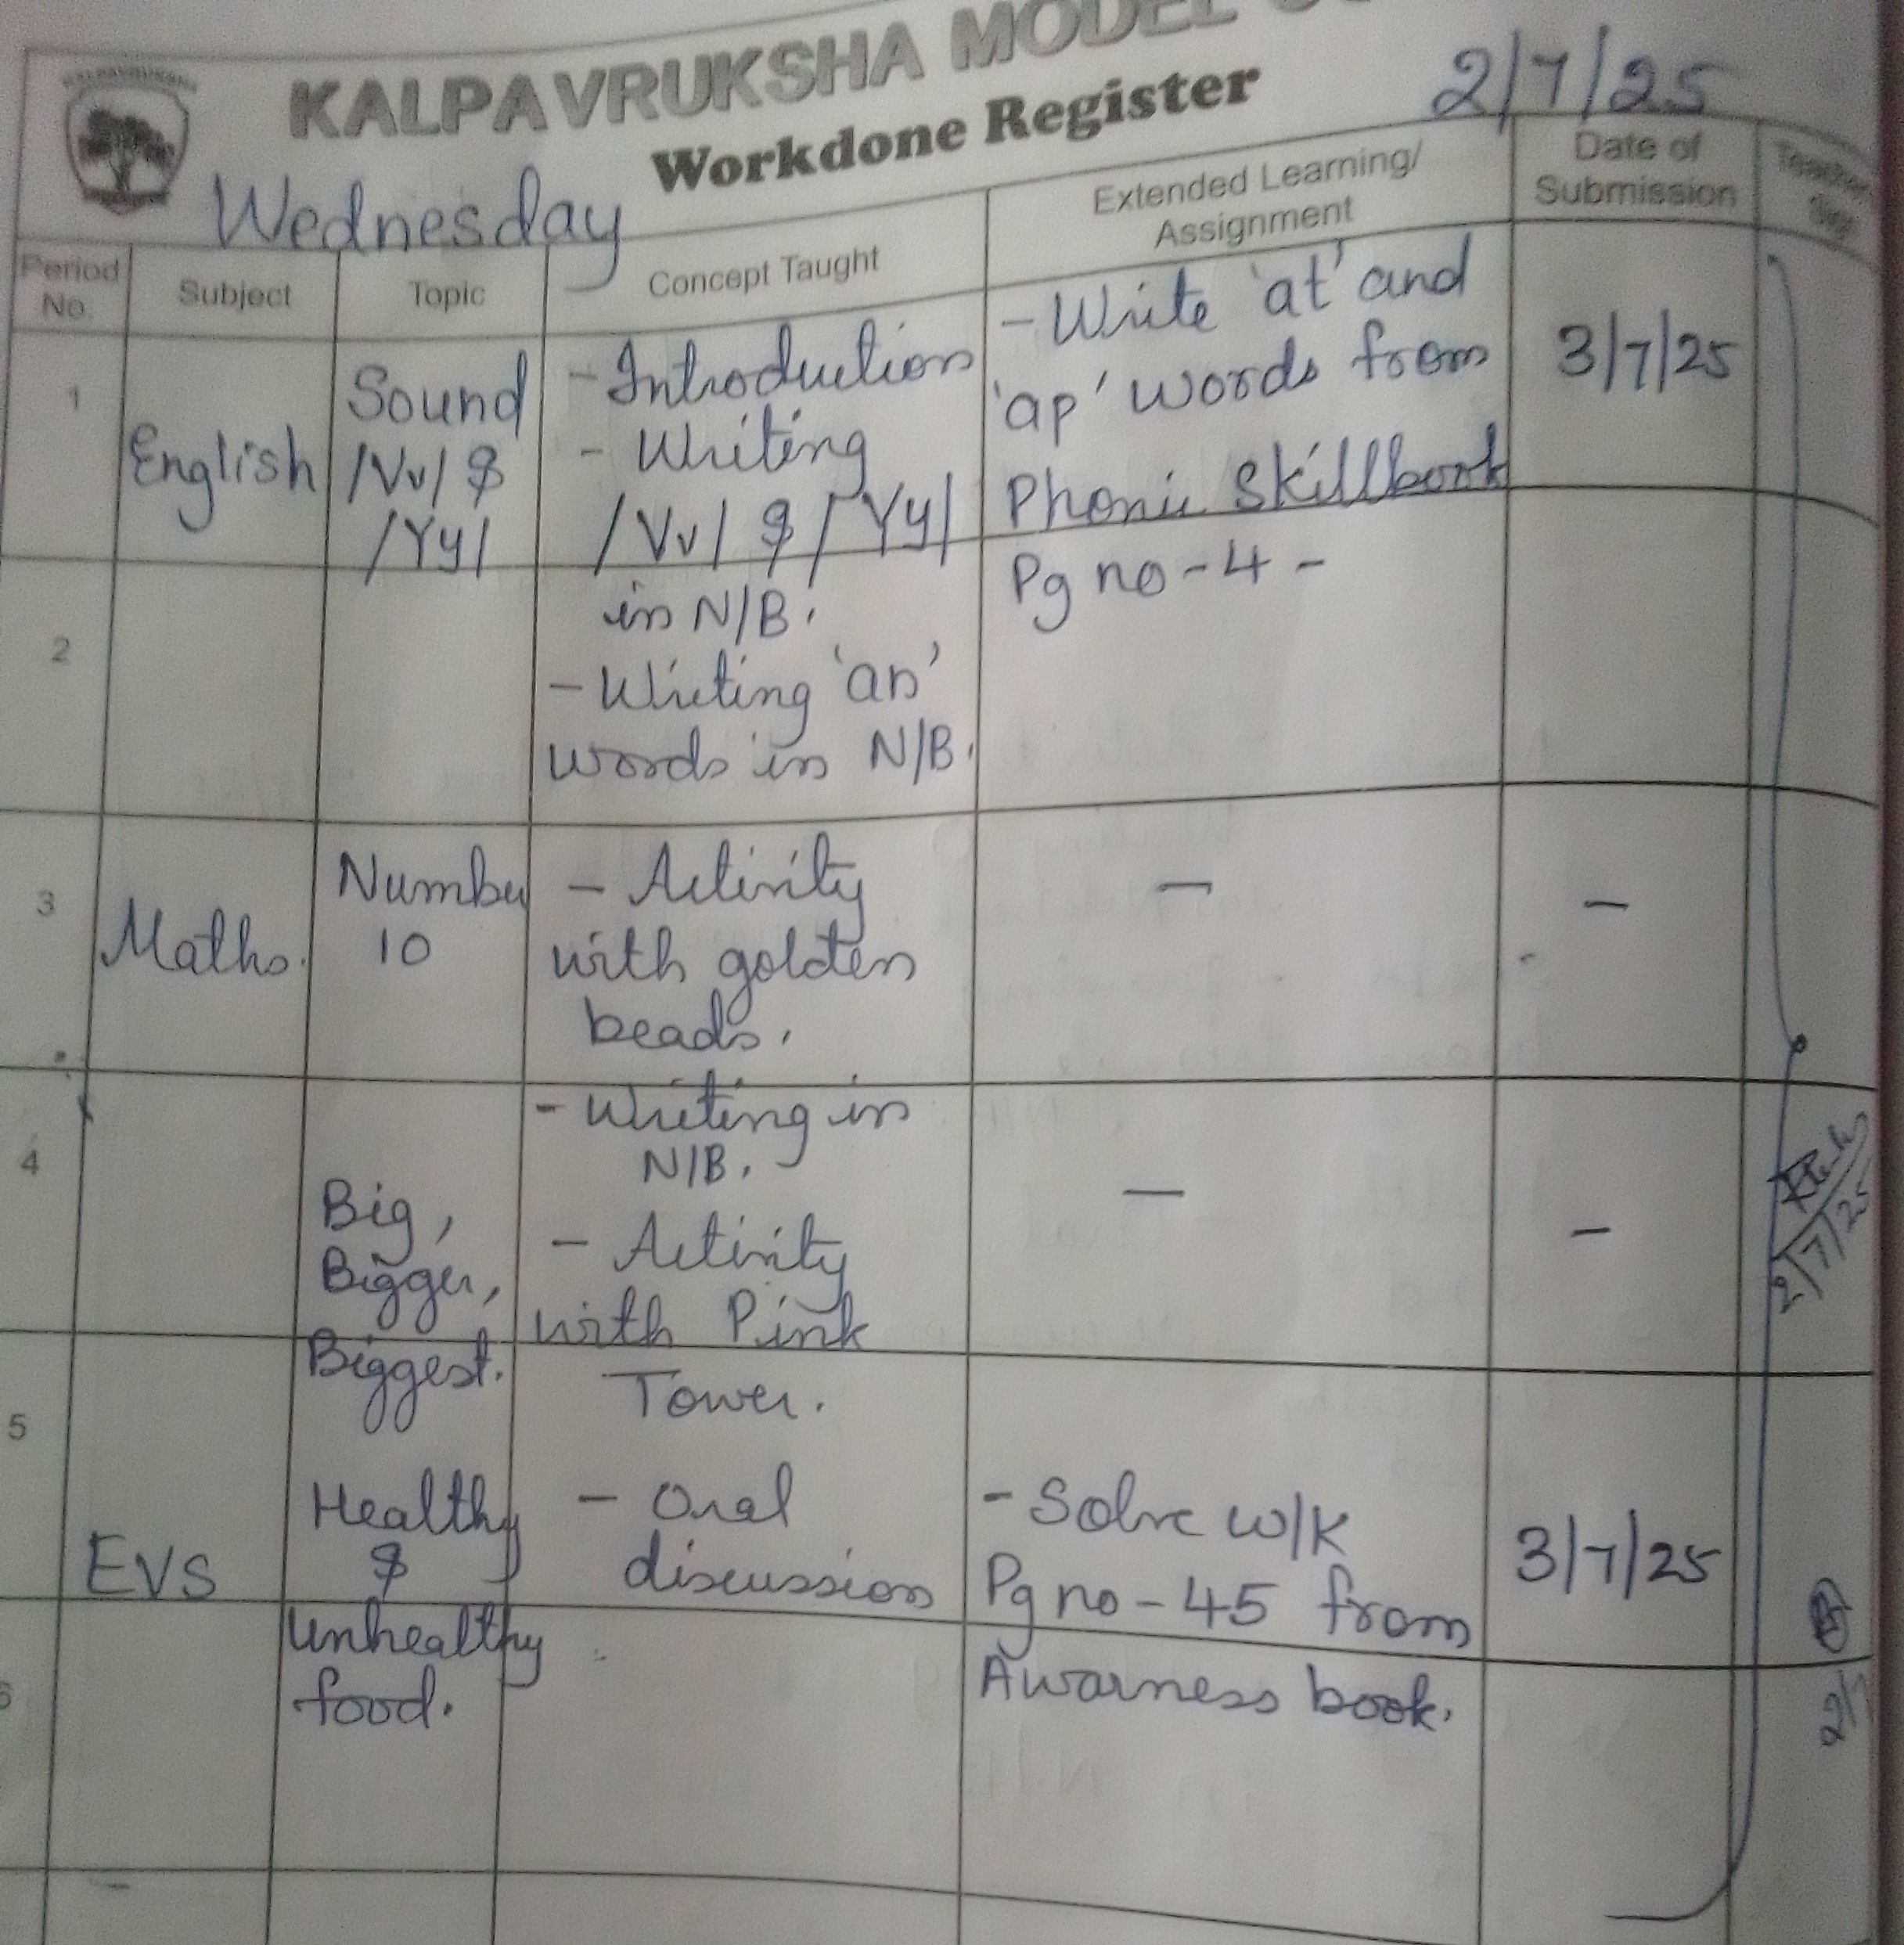 KALPAVRUKSHA MODEL
Workdone Register
2/7/25
Wednesday
Period No
Subject
Topic
Concept Taught
Extended Learning/
Assignment
Date of
Submission
Teacher
1
English
Sound
/Vv/ &
/Yy/
- Introduction
- Writing
/Vv/ & /Yy/
in N/B.
- Writing 'an'
words in N/B.
- Write 'at' and
'ap' words from
Phonic Skillbook
Pg no - 4 -
3/7/25
2
3
Maths.
Number
10
- Activity
with golden
beads.
- Writing in
N/B.
—
—
4
Big,
Bigger,
Biggest.
- Activity
with Pink
Tower.
—
—
2/7/25
5
EVS
Healthy
&
Unhealthy
food.
- Oral
discussion
- Solve w/k
Pg no - 45 from
Awarness book.
3/7/25
6